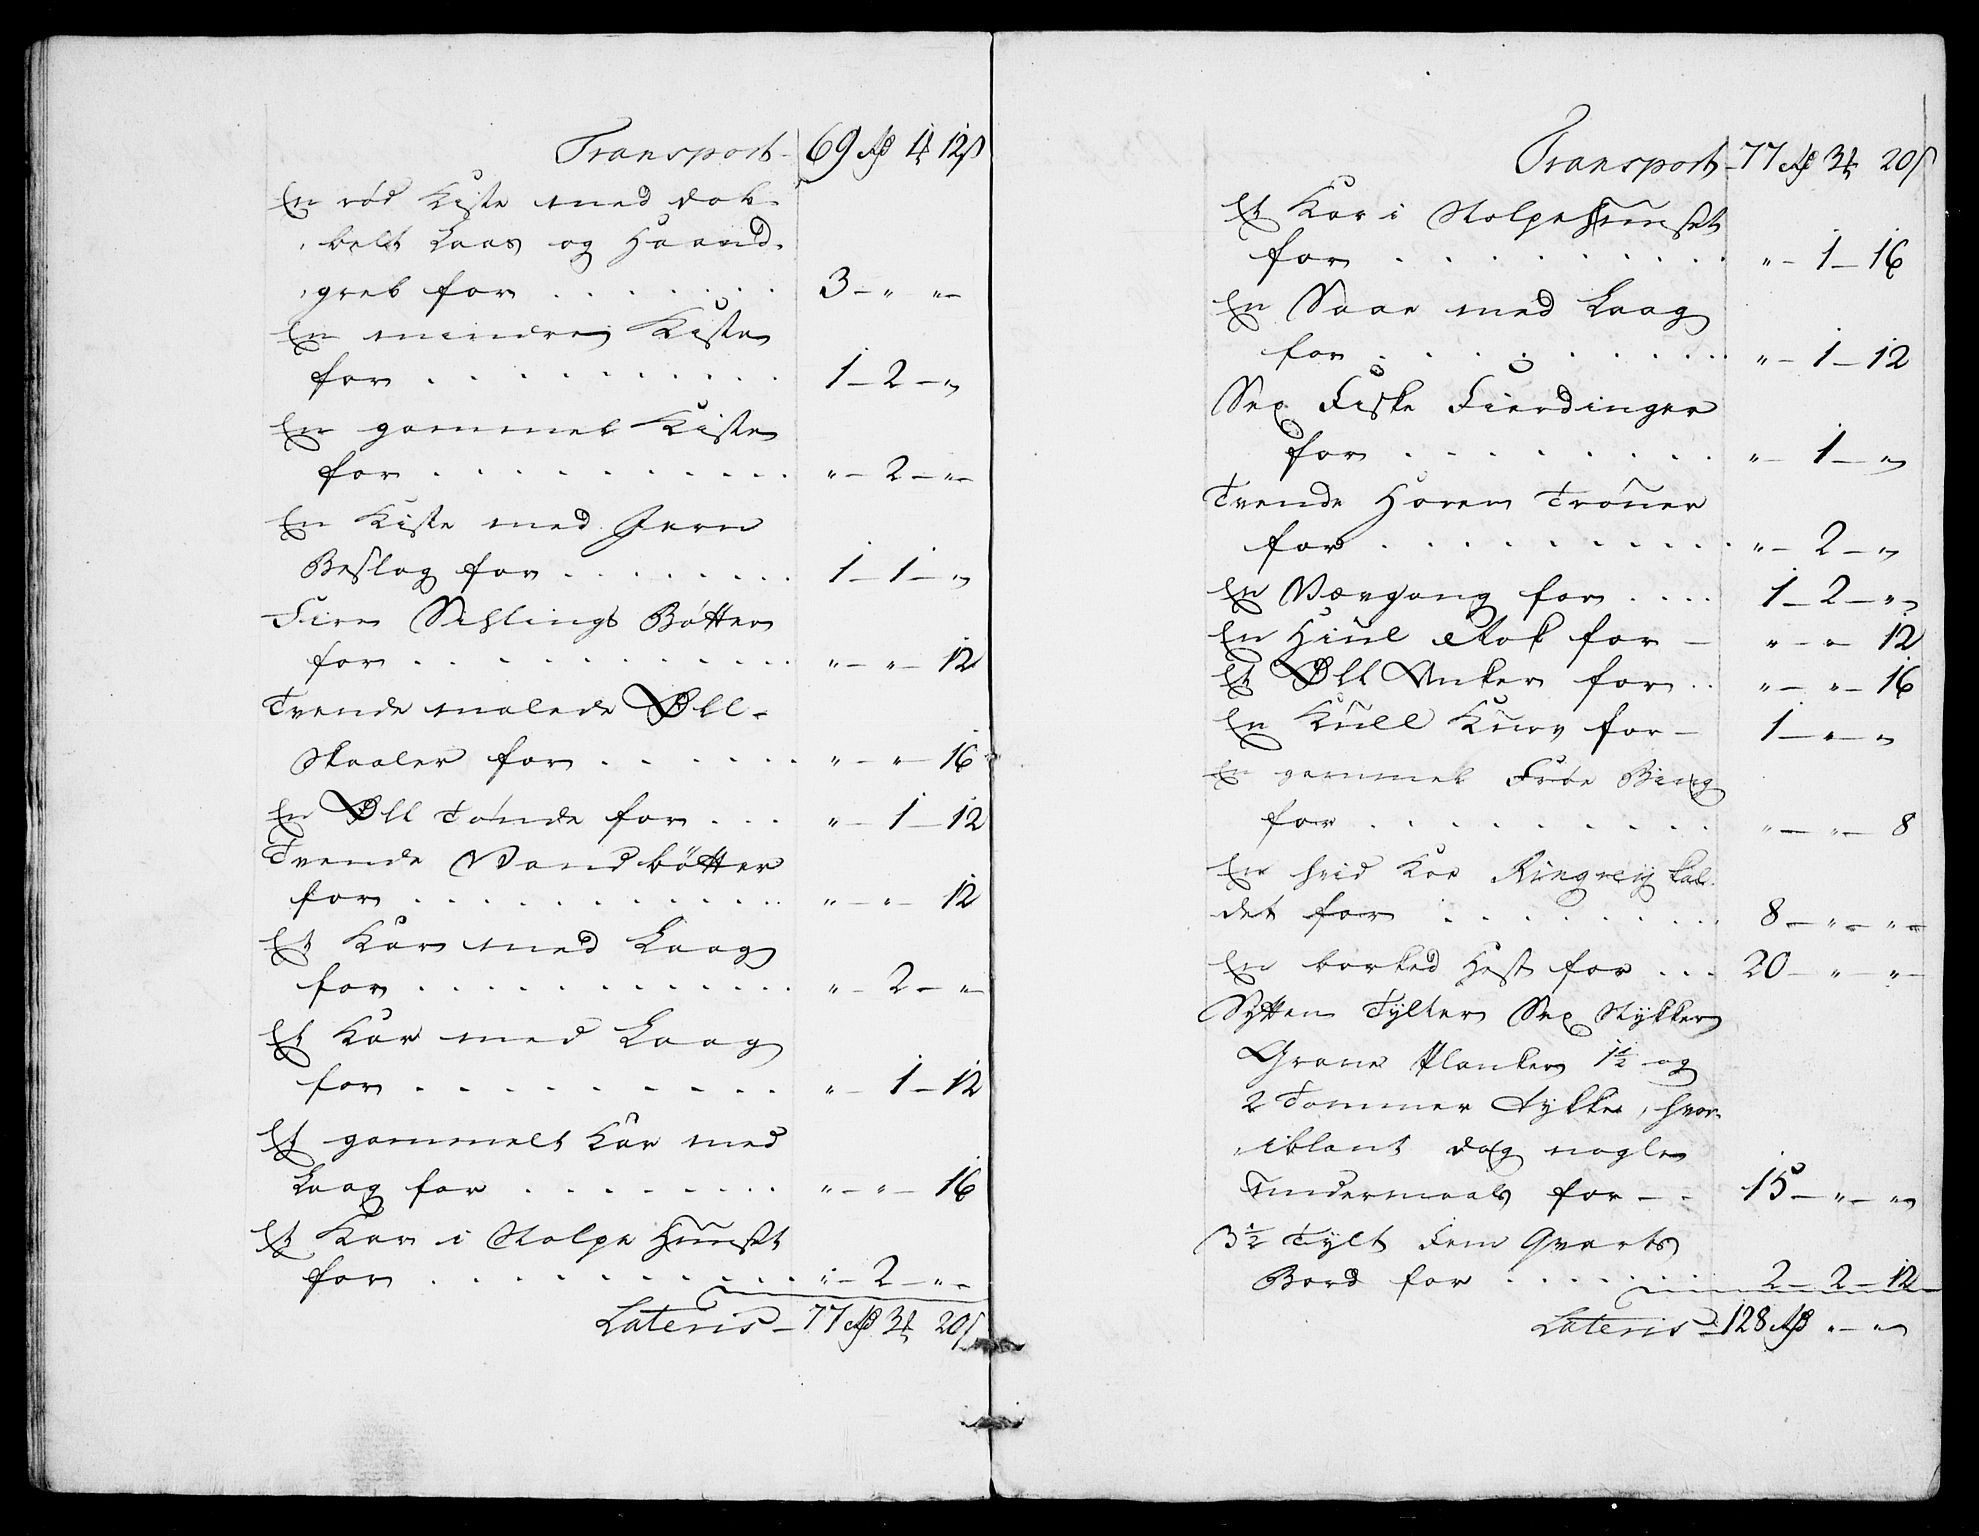 Transport - 69 Rd 4 12 s
En röd Kiste med dob-
belt Laas og Haand-
greb for . . . . . . 3 - " "-
En mindre Kiste
for . . . . . . . . . 1 - 2 - "
En gammel Kiste
for . . . . . . . . . " - 2 - "-
En Kiste med Jern
Beslag for . . . . . . 1 - 1 - "
Fire Sehlings Bötter
for . . . . . . . . . " - " - 12
Tvende malede Øll-
Skaaler for . . . . . . " - " - 16
En Øll Tønde for . . . " - 1 - 12
Tvende Vand bötter
for . . . . . . . . . " - " - 12
Et Kar med Laag
for . . . . . . . . . " - 2 - "
Et Kar med Laag
for . . . . . . . . . " - 1 - 12
Et gammelt Kar med
Laag for . . . . . . . " - " - 16
Et Kar i Stolpe Huuset
for . . . . . . . . . " - 2 - "-
Lateris - 77 Rd 3 20 s
Transport - 77 Rd 3 20 s
Et Kar i Stolpehuuset
for . . . . . . . . . " - 1 - 16
En Saae med Laag
for . . . . . . . . . " - 1 - 12
Sex Fiske Fierdinger
for . . . . . . . . . " - 1 - "
Tvende Horen Tröuer
for . . . . . . . . . " - 2 - "
En Vævgang for . . . . 1 - 2 - "
En Hiul Rok for - " - " 12
Et Øll Anker for . . " - " - 16
En Kull Kurv for - 1 - " - "
En gammel Fröe Bing
for . . . . . . . . . " - " - 8
En hvid Koe Ringreij kal-
det for . . . . . . . 8 - " - "-
En borked Hest for . . . 20 - " - "-
Sytten Tylter Sex Stykker
Grane Planker 1½ og
2 Tommer tykke, hvor-
iblant dog nogle
Undermaals for - - 15 - " - "
3½ Tylt Fem Qvarts
Bord for . . . . . . 2 - 2 - 12
Lateris - 128 Rd " - "